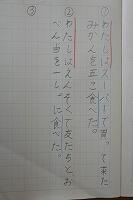 ①わたしはスーパーで買って来た
みかんを五こ食べた。
②わたしはえんそくで友だちとお
べん当を一しょに食べた。
③